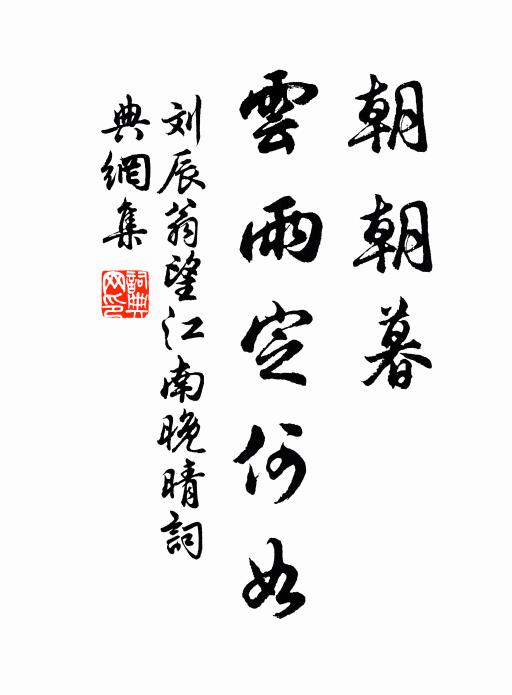 朝朝暮
雲雨定何如
刘辰翁望江南晚晴詞
典網集
詞典
网印